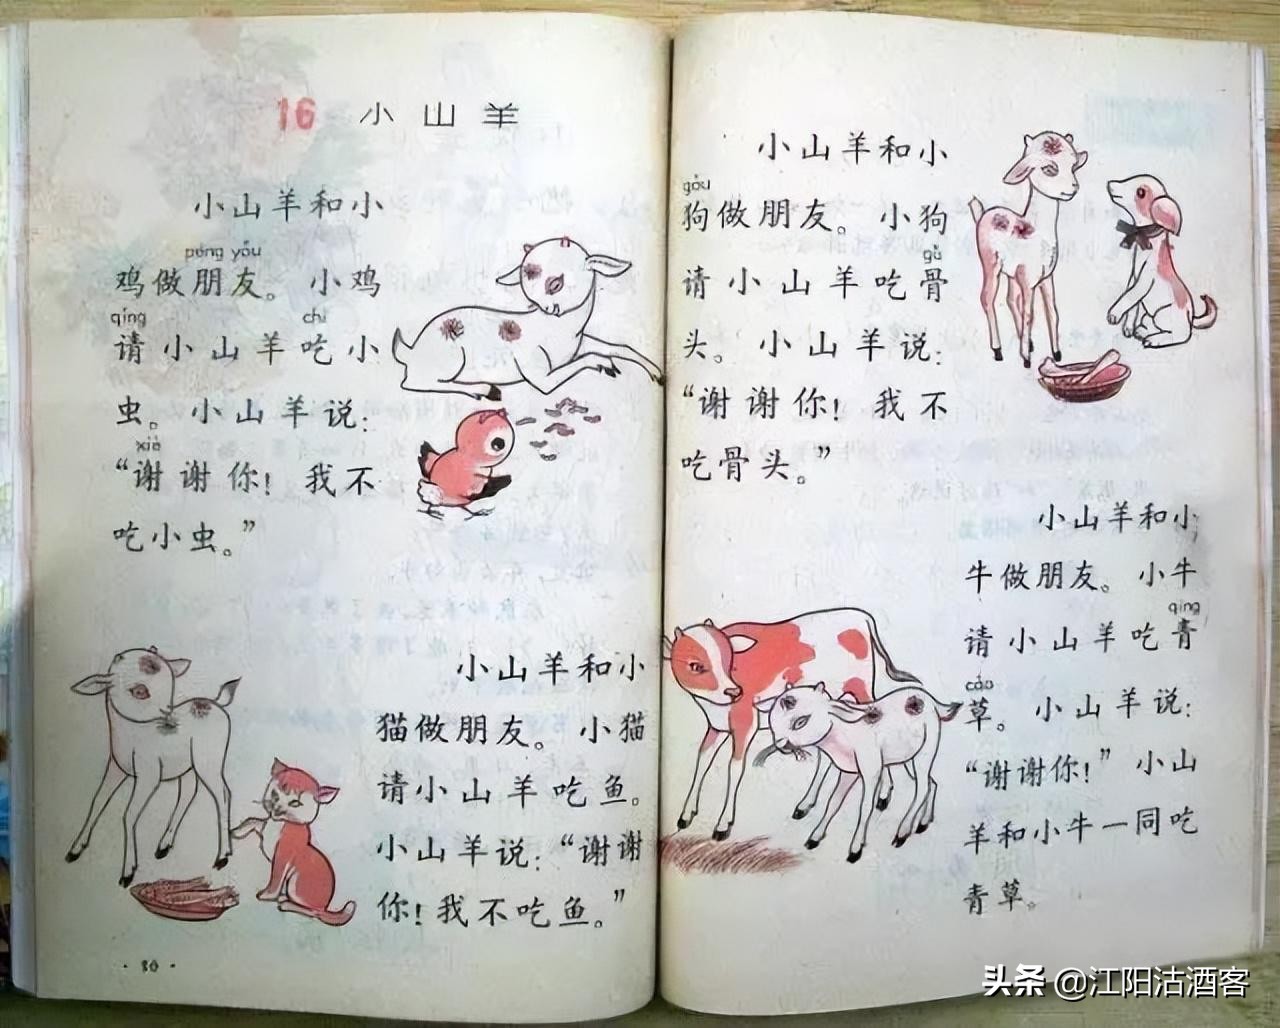 16 小山羊
小山羊和小
péng yǒu
鸡做朋友。小鸡
qǐng chī
请小山羊吃小
虫。小山羊说：
xiè
“谢谢你！我不
吃小虫。”
小山羊和小
猫做朋友。小猫
请小山羊吃鱼。
小山羊说：“谢谢
你！我不吃鱼。”
·80·
小山羊和小
gǒu
狗做朋友。小狗
gǔ
请小山羊吃骨
头。小山羊说：
“谢谢你！我不
吃骨头。”
小山羊和小
牛做朋友。小牛
qīng
请小山羊吃青
cǎo
草。小山羊说：
“谢谢你！”小山
羊和小牛一同吃
青草。
头条 @江阳沽酒客